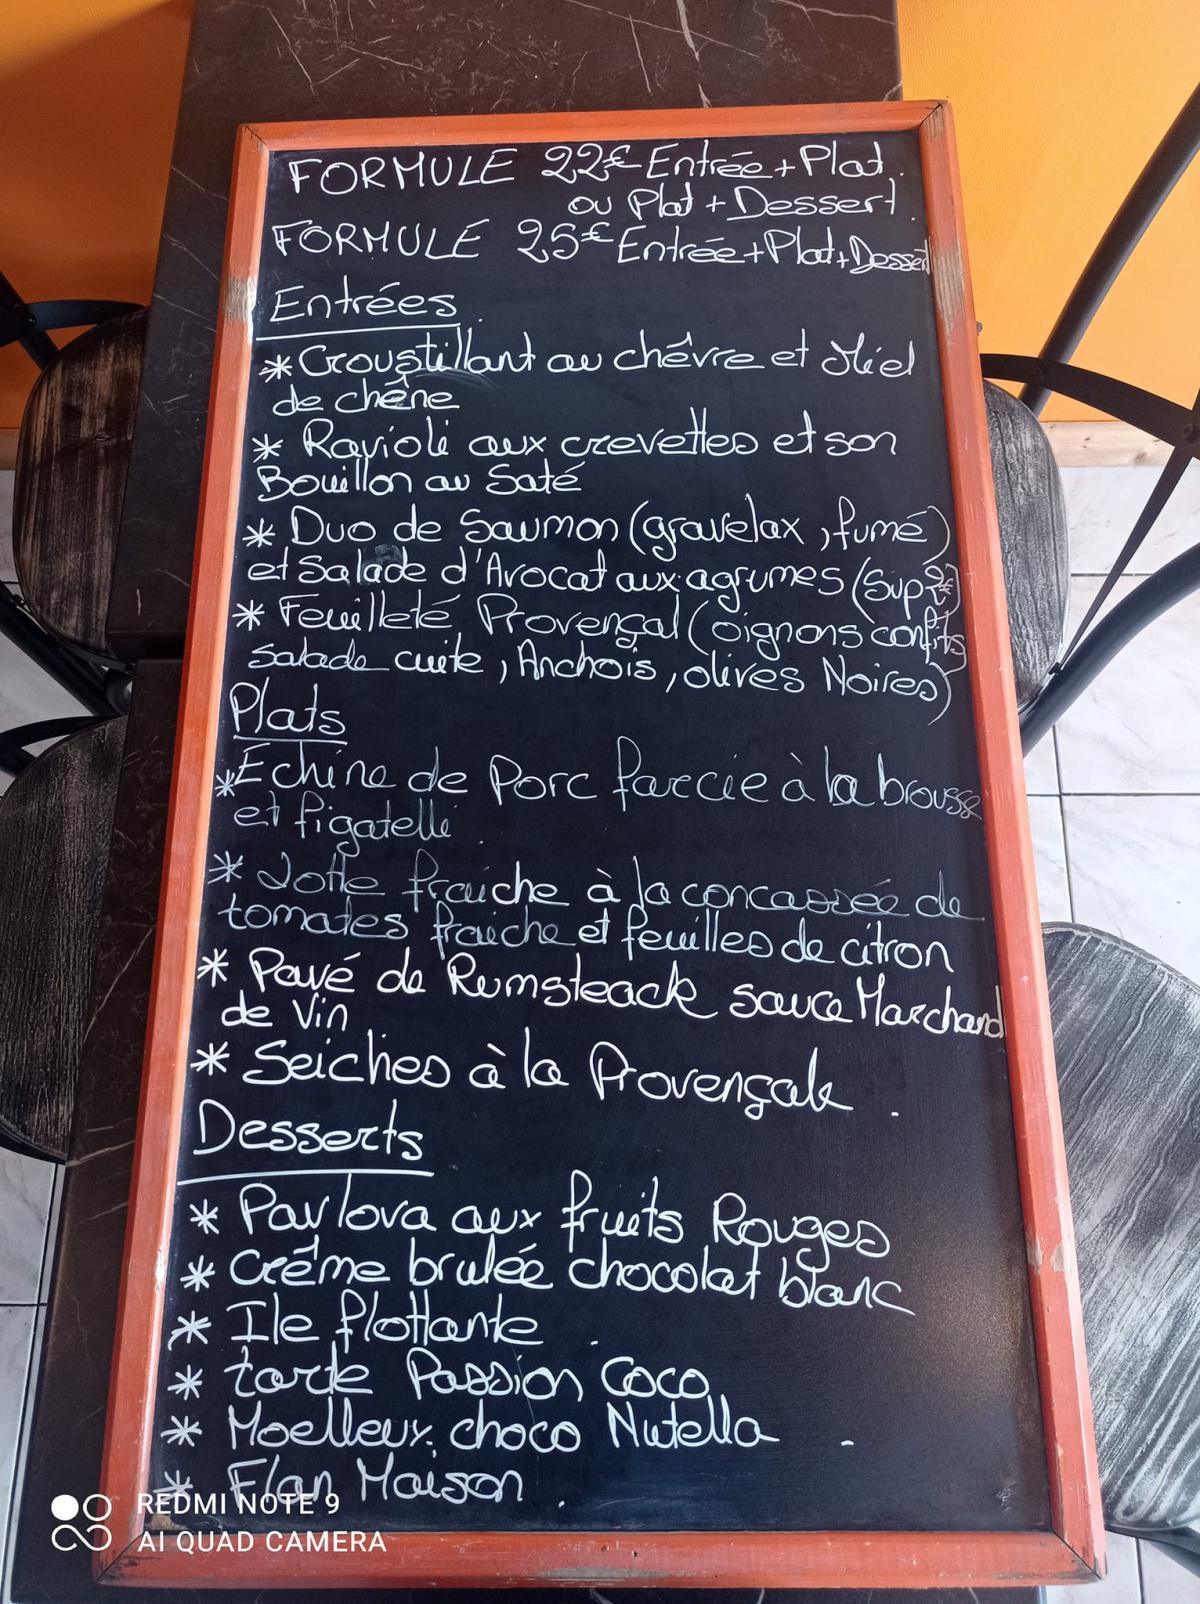 FORMULE 22€ Entrée + Plat.
ou Plat + Dessert.
FORMULE 25€ Entrée + Plat + Dessert
Entrées.
* Croustillant au chêvre et Miel
de chêne
* Ravioli aux crevettes et son
Bouillon au Saté
* Duo de Saumon (gravelax, fumé)
et Salade d'Avocat aux agrumes (Sup 2€)
* Feuilleté Provençal (oignons confits
salade cuite, Anchois, olives Noires)
Plats
* Echine de Porc farcie à la brousse
et figatelli.
* Lotte fraiche à la concassée de
tomates fraiche et feuilles de citron
* Pavé de Rumsteack sauce Marchand
de Vin
* Seiches à la Provençale.
Desserts
* Pavlova aux fruits Rouges
* Crême brulée chocolat blanc
* Ile flottante.
* tarte Passion Coco
* Moelleux choco Nutella.
* Flan Maison.
REDMI NOTE 9
AI QUAD CAMERA